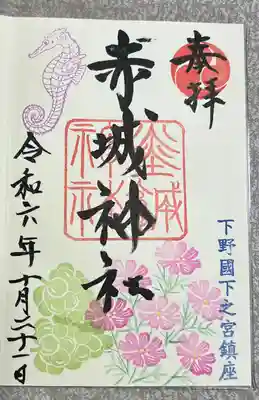 奉拝
下野國下之宮鎮座
赤城神社
赤城神社
令和六年十月二十一日